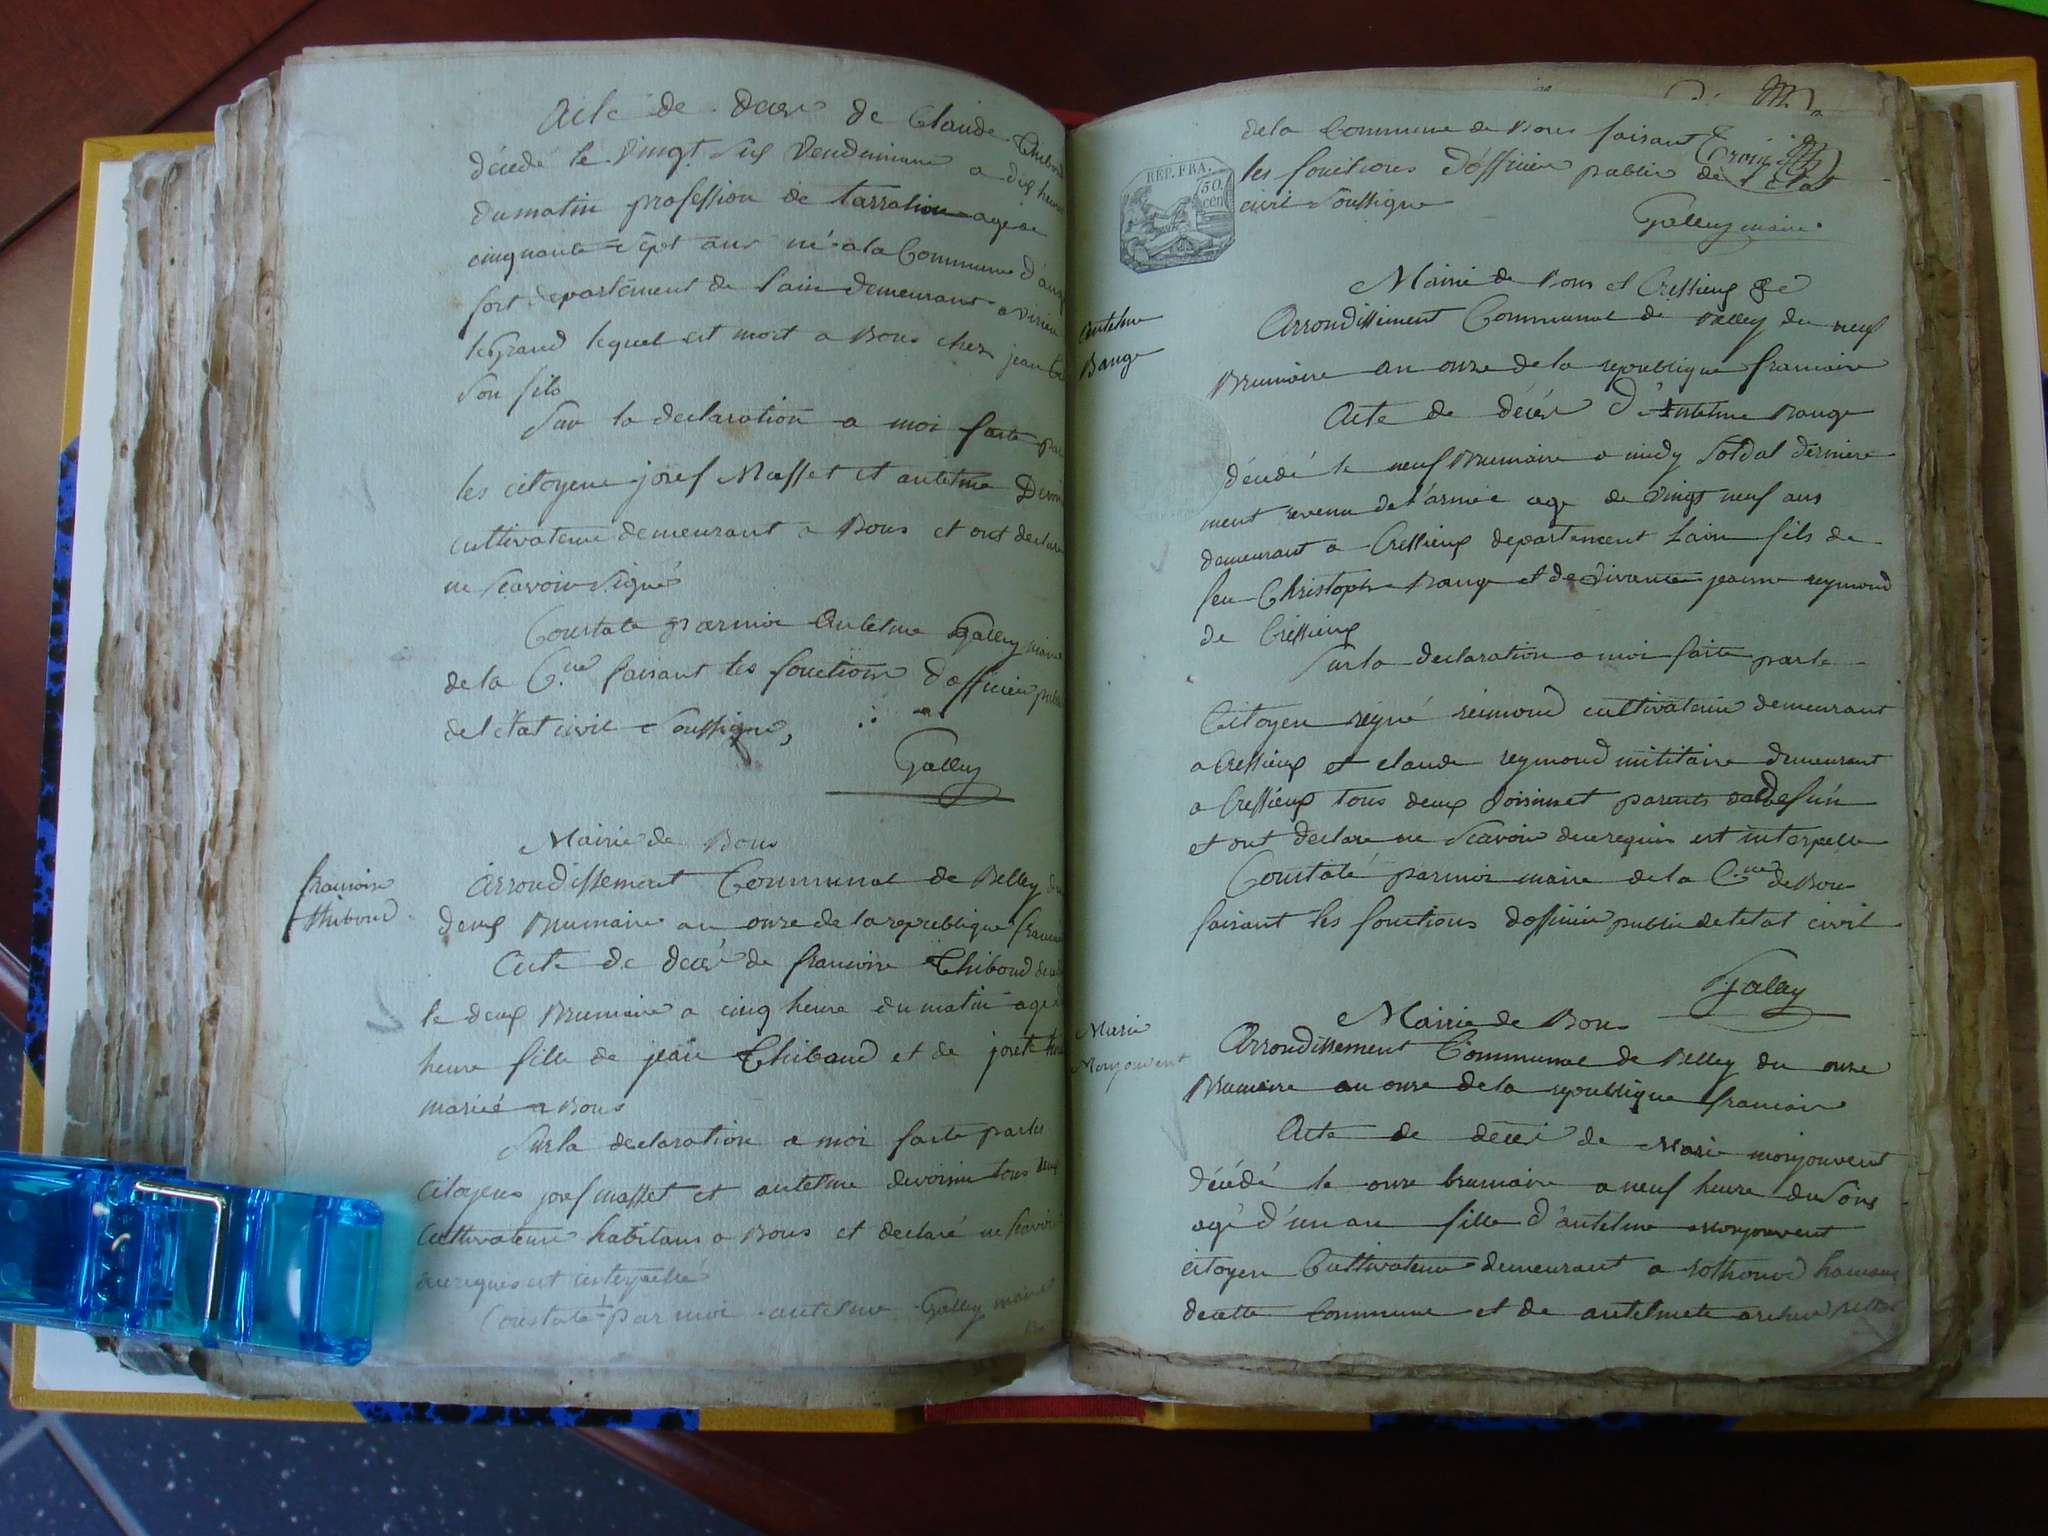 Acte de deces de Claude Thiboud
décédé le vingt six Vendemiaire a dix heure
du matin profession de tarralion age de
cinquante sept ans né a la Commune d'
fort departement de Lain demeurant a virieu
le Grand lequel est mort a Bons chez jean
Son fils
Sur la declaration a moi faite par
les citoyens josef Masset et antelme
cultivateur demeurant a Bons et ont declare
ne scavoir signé
Constate par moi Antelme Galley maire
de la C.ne faisant les fonction d'officier public
de l'état civil Soussigné,
Galley
Mairie de Bons
francoise
thiboud
Arrondissement Communal de Belley du
deux Brumaire an onze de la republique francaise
Acte de décé de francoise Thiboud
le deux Brumaire a cinq heure du matin agé
heure fille de jean Thiboud et de
marié a Bons
Sur la declaration a moi faite par les
Citoyens josef masset et antelme devoisin tous deux
Cultivateur habitans a Bons et declaré ne scavoir
de ce requis et interpellé
Constaté par moi antelme Galley maire
de la Commune de Bons faisant
les fonctions d'officier public de l'état
civil Soussigné
Galley maire
REP. FRA.
50
cen
Mairie de Bons et Cressieux
Antelme
Bange
Arrondissement Communal de Belley du neuf
Brumaire an onze de la republique francaise
Acte de décés d'Antelme Bange
décédé le neuf Brumaire a midy Soldat derniere
ment revenu de l'armée age de vingt neuf ans
demeurant a Cressieux departement Lain fils de
feu Christophe Bange et de vivante jeanne reymond
de Cressieux
Sur la declaration a moi faite par le
Citoyen reimond cultivateur demeurant
a Cressieux et claude reymond militaire demeurant
a Cressieux tous deux voisins et parents du defun
et ont declare ne scavoir de ce requis est interpelle
Constaté par moi maire de la C.ne de Bons
faisant les fonctions d'officier public de l'etat civil
Galley
Mairie de Bons
Marie
Monjouvent
Arrondissement Communal de Belley du onze
Brumaire an onze de la republique francaise
Acte de décé de Marie monjouvent
décédé le onze brumaire a neuf heure du soir
agé d'un an fille d'antelme monjouvent
citoyen Cultivateur demeurant a rothonod hameau
de cette Commune et de antelmete